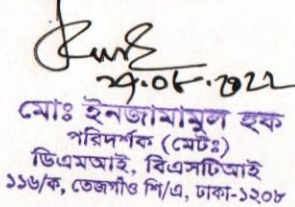 ২৭.০৮.২০২২
মোঃ ইনজামামুল হক
পরিদর্শক (মেটঃ)
ডিএমআই, বিএসটিআই
১১৬/ক, তেজগাঁও শি/এ, ঢাকা-১২০৮